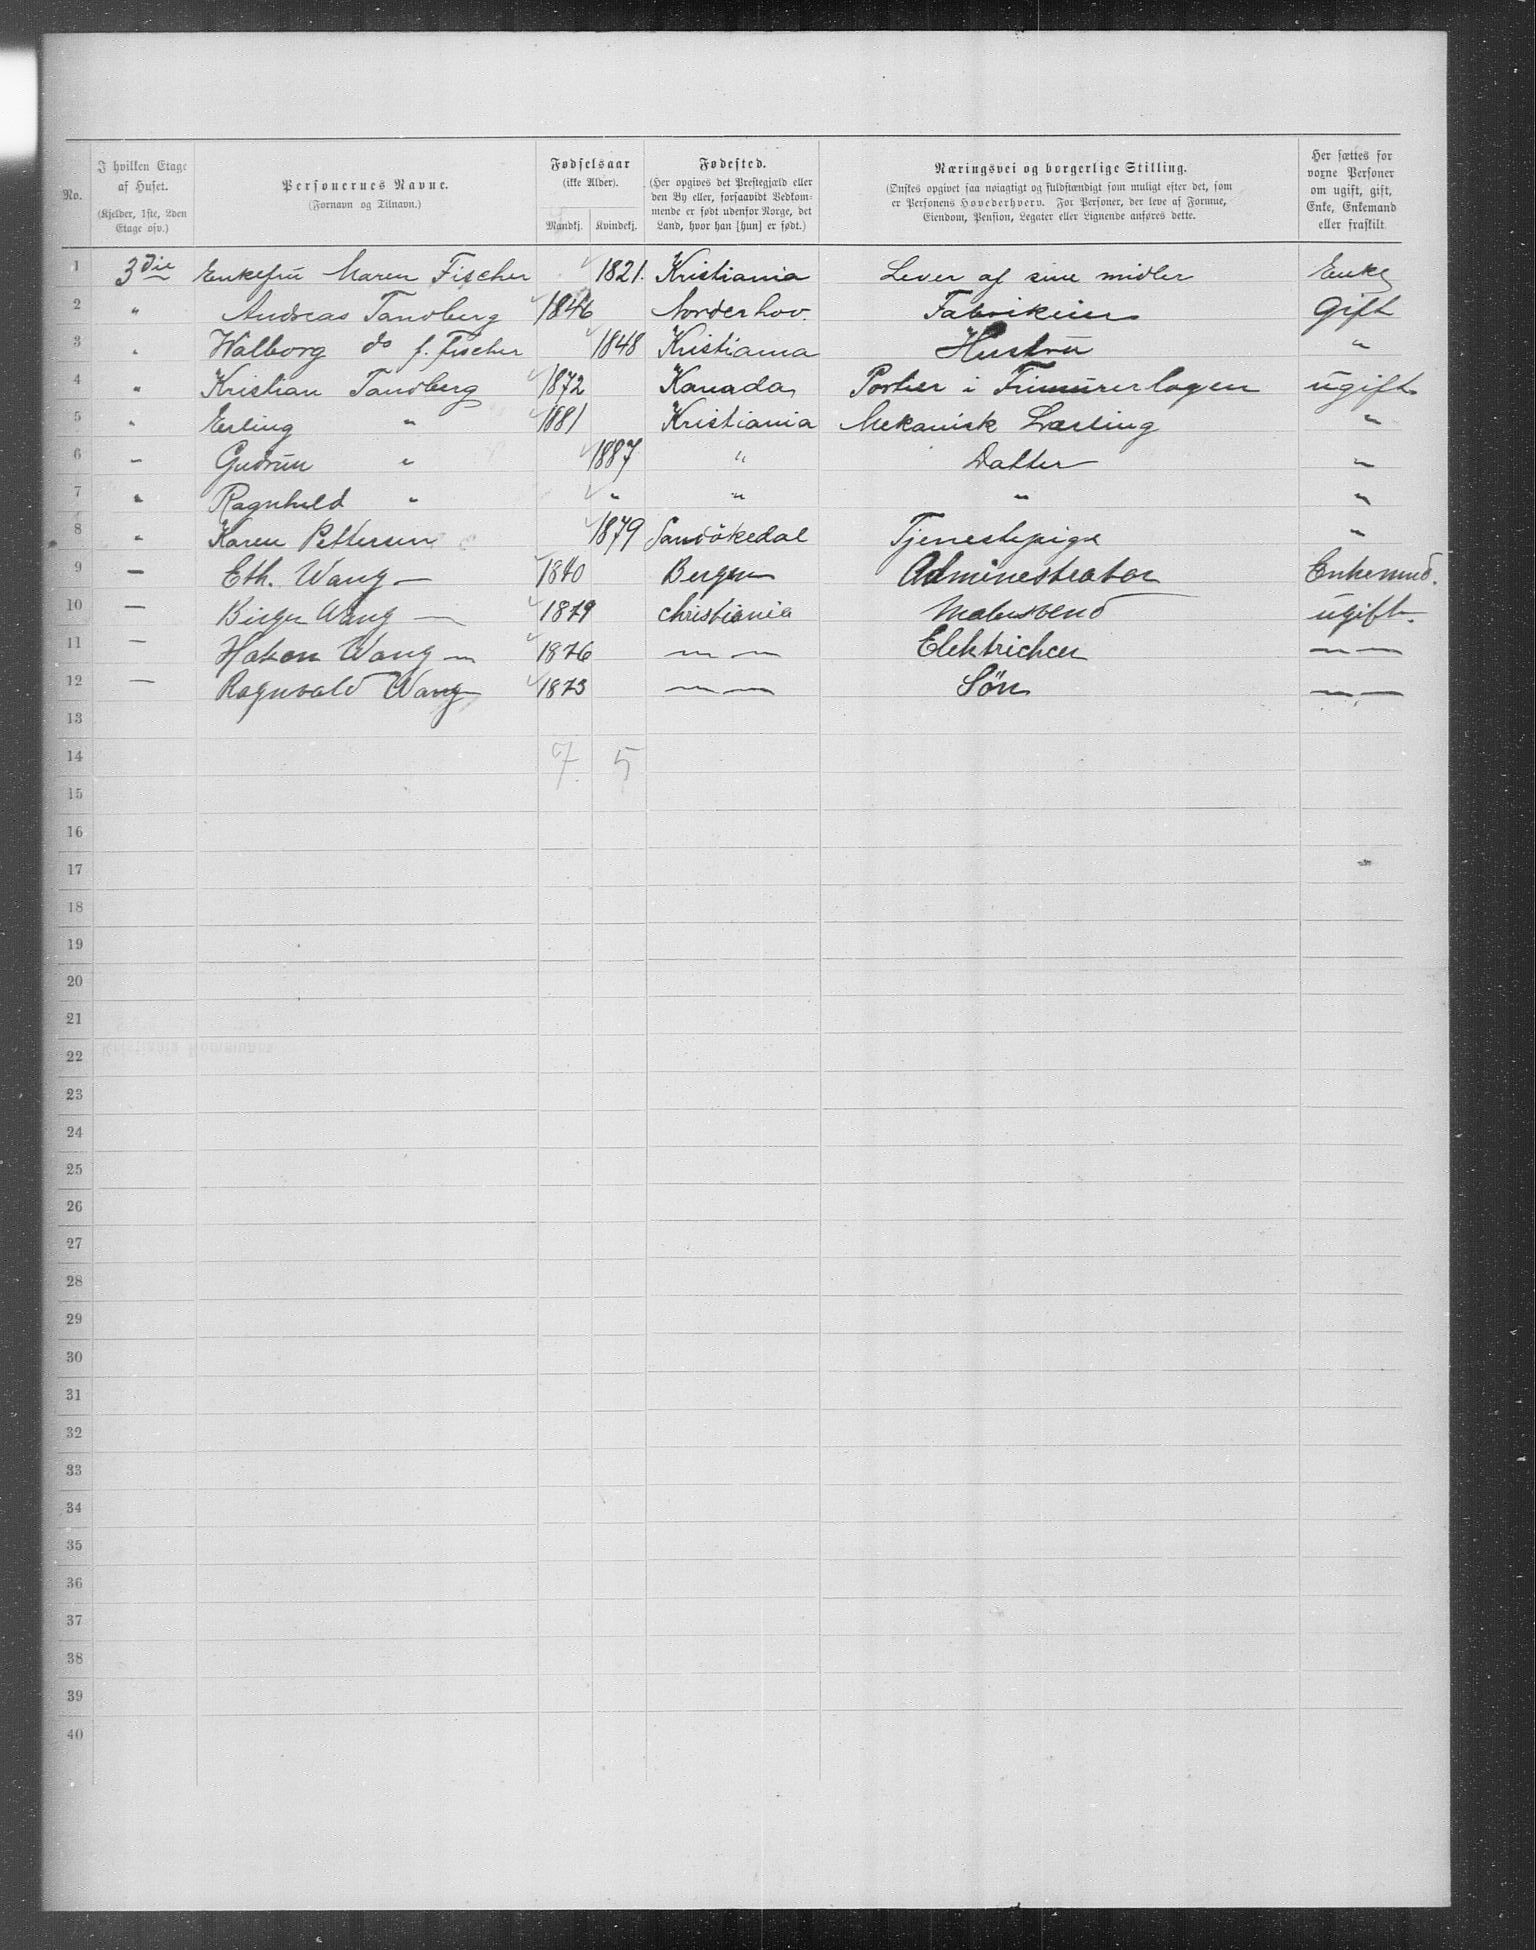 No. | I hvilken Etage af Huset. (Kjelder, 1ste, 2den Etage osv.) | Personernes Navne. (Fornavn og Tilnavn.) | Fødselsaar (ikke Alder). Mandkj. | Kvindekj. | Fødested. (Her opgives det Prestegjæld eller den By eller, forsaavidt Vedkommende er født udenfor Norge, det Land, hvor han [hun] er født.) | Næringsvei og borgerlige Stilling. (Ønskes opgivet saa nøiagtigt og fuldstændigt som muligt efter det, som er Personens Hovederhverv. For Personer, der leve af Formue, Eiendom, Pension, Legater eller Lignende anføres dette.) | Her sættes for voxne Personer om ugift, gift, Enke, Enkemand eller fraskilt.
1 3die Enkefru Maren Fischer 1821. Kristiania Lever af sine midler Enke
2 " Andreas Tandberg 1846 Norderhov. Fabrikeier Gift
3 " Walborg do f. Fischer 1848 Kristiania Hustru "
4 " Kristian Tandberg 1872 Kanada Portier i Frimurerlogen ugift
5 " Erling " 1881 Kristiania Mekanisk Lærling "
6 " Gudrun " 1887 " Datter "
7 " Ragnhild " " " " "
8 " Karen Pettersen 1879 Sandökedal Tjenestepige "
9 — Eth. Wang — 1840 Bergen Administrator Enkemnd.
10 — Birger Wang — 1879 Christiania Malersvend ugift.
11 — Hakon Wang — 1876 — — Elektriker — —
12 — Ragnvald Wang 1873 — — Sön — —
13
14 7 5
15
16
17
18
19
20
21
22
23
24
25
26
27
28
29
30
31
32
33
34
35
36
37
38
39
40